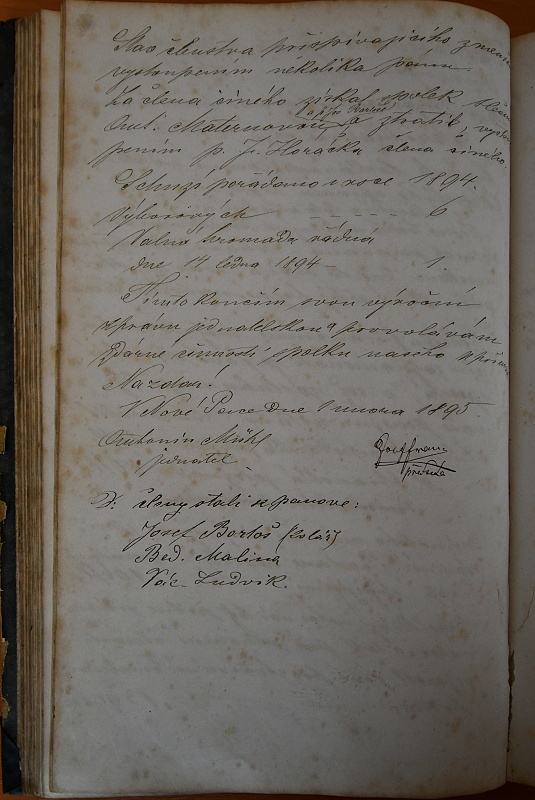 Stav členstva přispívajícího změněn
vystoupením několika pánů.
Za člena činného získal spolek slečnu
a p. Jos. Bartoš
Ant. Maternovou a ztratil vystou
pením p. J. Horáčka člena činného.
Schůzí pořádáno v roce 1894.
Výborových - - - - - 6
Valná hromada řádná
dne 14 ledna 1894 – 1.
Tímto končím svou výroční
zprávu jednatelskou a provolávám
zdárné činnosti spolku našeho
Na zdar!
V Nové Pace dne 1 února 1895.
Antonín Mühl
jednatel.
předseda
členy stali se panové:
Josef Bartoš (kolář)
Bed. Malina
Vác. Ludvík.